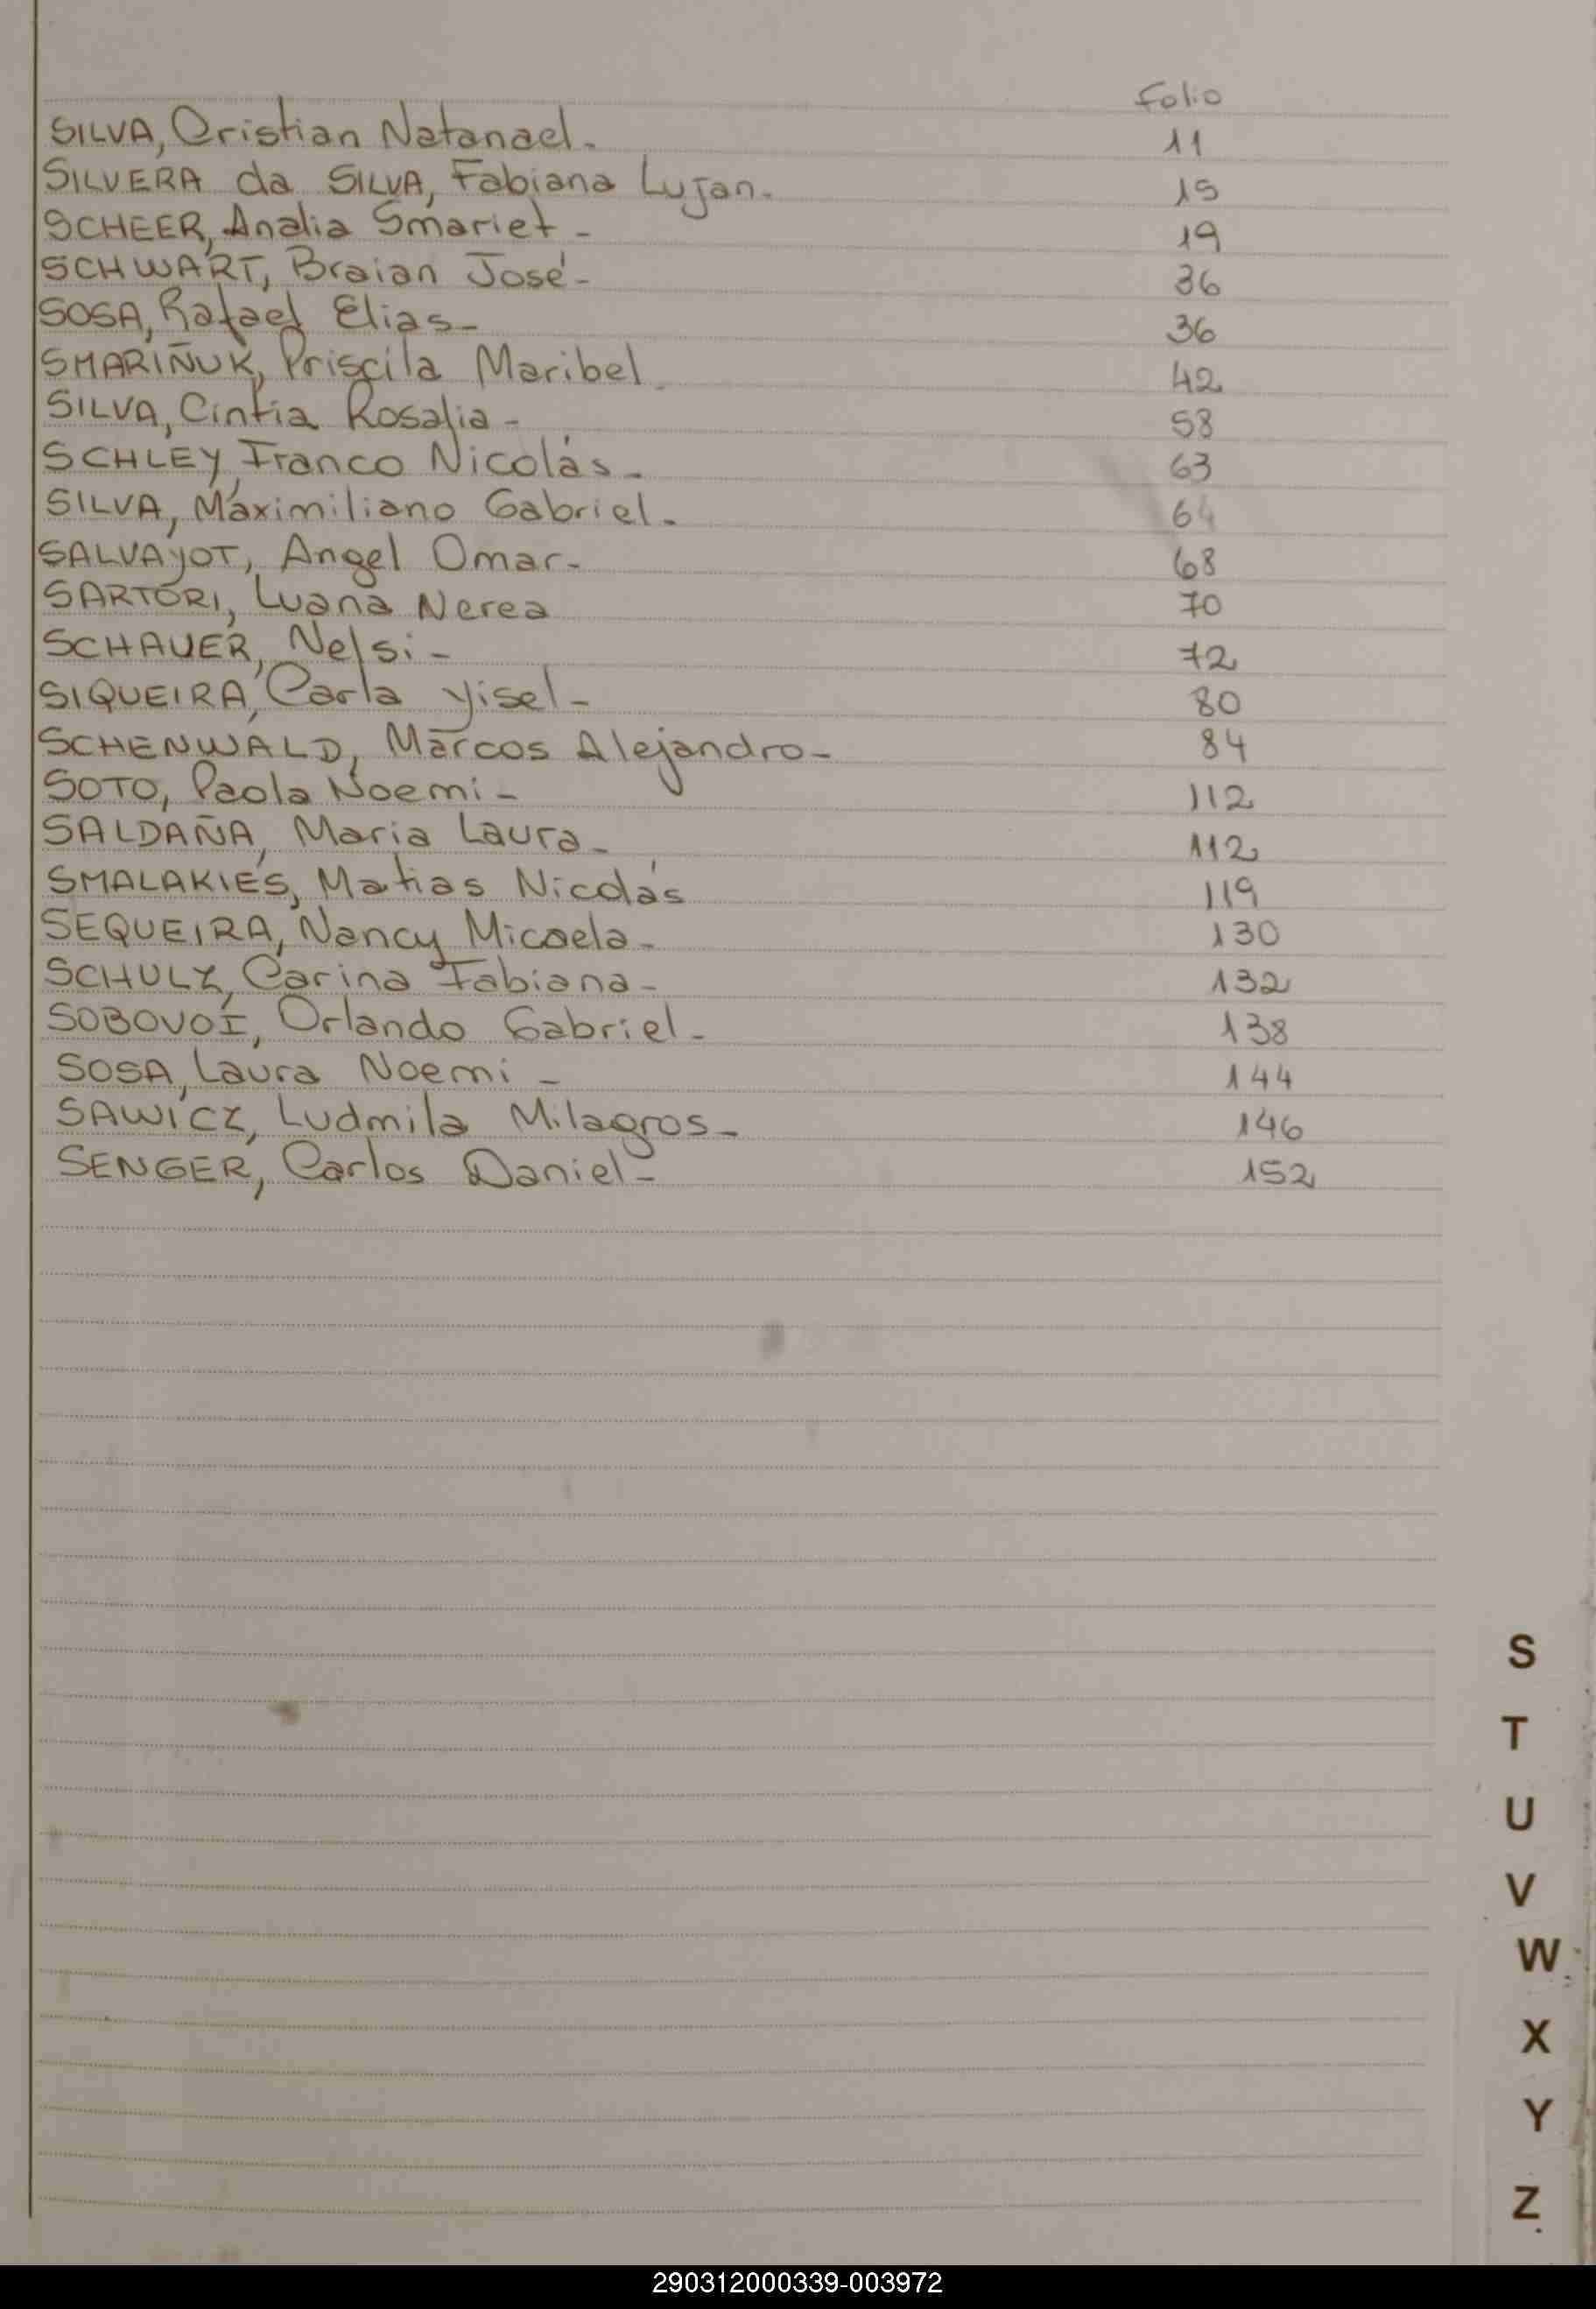 Folio
SILVA, Cristian Natanael. 11
SILVERA da SILVA, Fabiana Lujan. 15
SCHEER, Analia Smariet - 19
SCHWART, Braian José - 36
SOSA, Rafael Elias - 36
SMARIÑUK, Priscila Maribel 42
SILVA, Cintia Rosalia - 58
SCHLEY, Franco Nicolás - 63
SILVA, Maximiliano Gabriel. 64
SALVAYOT, Angel Omar - 68
SARTORI, Luana Nerea 70
SCHAUER, Nelsi - 72
SIQUEIRA, Carla Yisel - 80
SCHENWALD, Marcos Alejandro - 84
SOTO, Paola Noemi - 112
SALDAÑA, Maria Laura - 112
SMALAKIES, Matias Nicolás 119
SEQUEIRA, Nancy Micaela - 130
SCHULZ, Carina Fabiana - 132
SOBOVOI, Orlando Gabriel - 138
SOSA, Laura Noemi - 144
SAWICZ, Ludmila Milagros - 146
SENGER, Carlos Daniel - 152
S
T
U
V
W
X
Y
Z
290312000339-003972